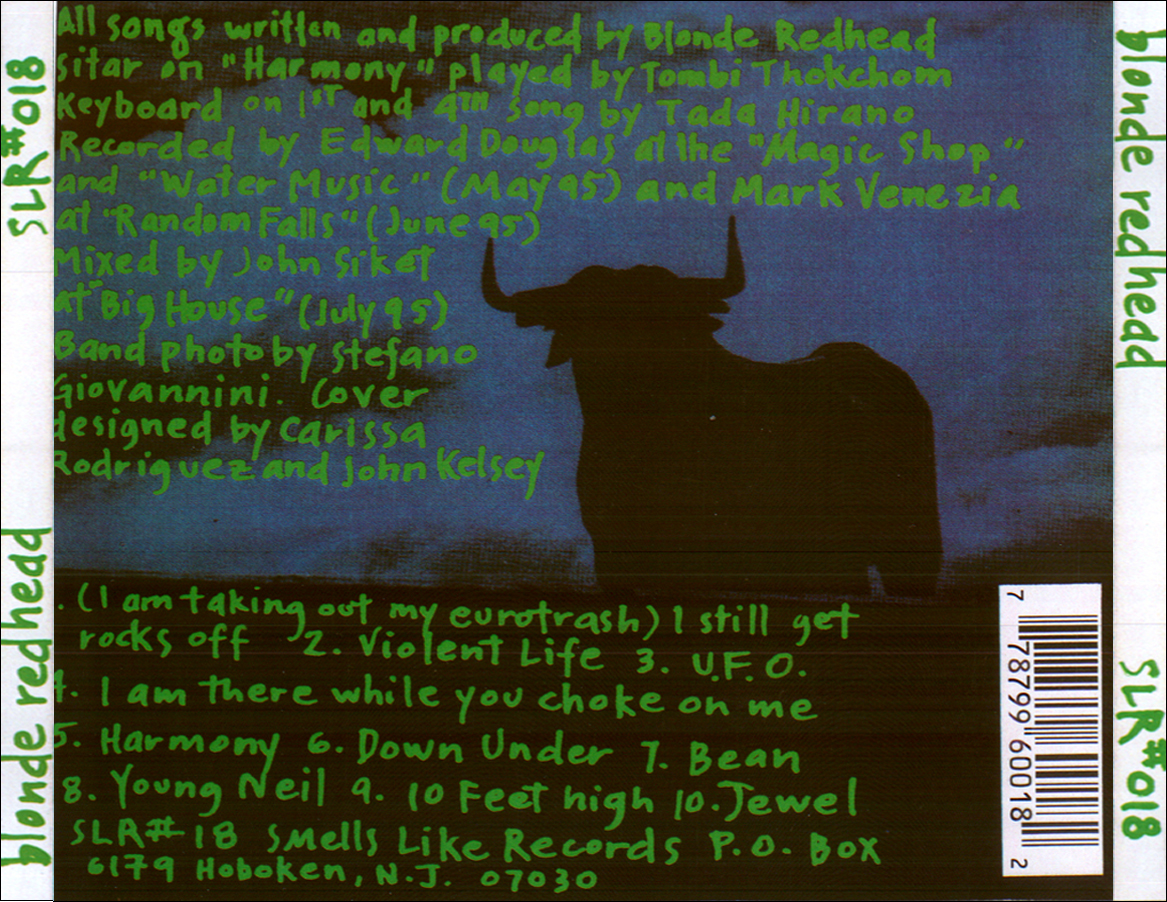 All songs written and produced by Blonde Redhead
sitar on "Harmony" played by Tombi Thokchom
Keyboard on 1ST and 4TH song by Tada Hirano
Recorded by Edward Douglas at the "Magic Shop"
and "Water Music" (May 95) and Mark Venezia
at "Random Falls" (June 95)
Mixed by John Siket
at "Big House" (July 95)
Band photo by Stefano
Giovannini. Cover
designed by Carissa
Rodriguez and John Kelsey
. (I am taking out my eurotrash) I still get
rocks off 2. Violent Life 3. U.F.O.
4. I am there while you choke on me
5. Harmony 6. Down Under 7. Bean
8. Young Neil 9. 10 Feet high 10. Jewel
SLR# 18 Smells Like Records P.O. Box
6179 Hoboken, N.J. 07030
blonde redhead
SLR#018
blonde redhead
SLR#018
7 78799 60018 2